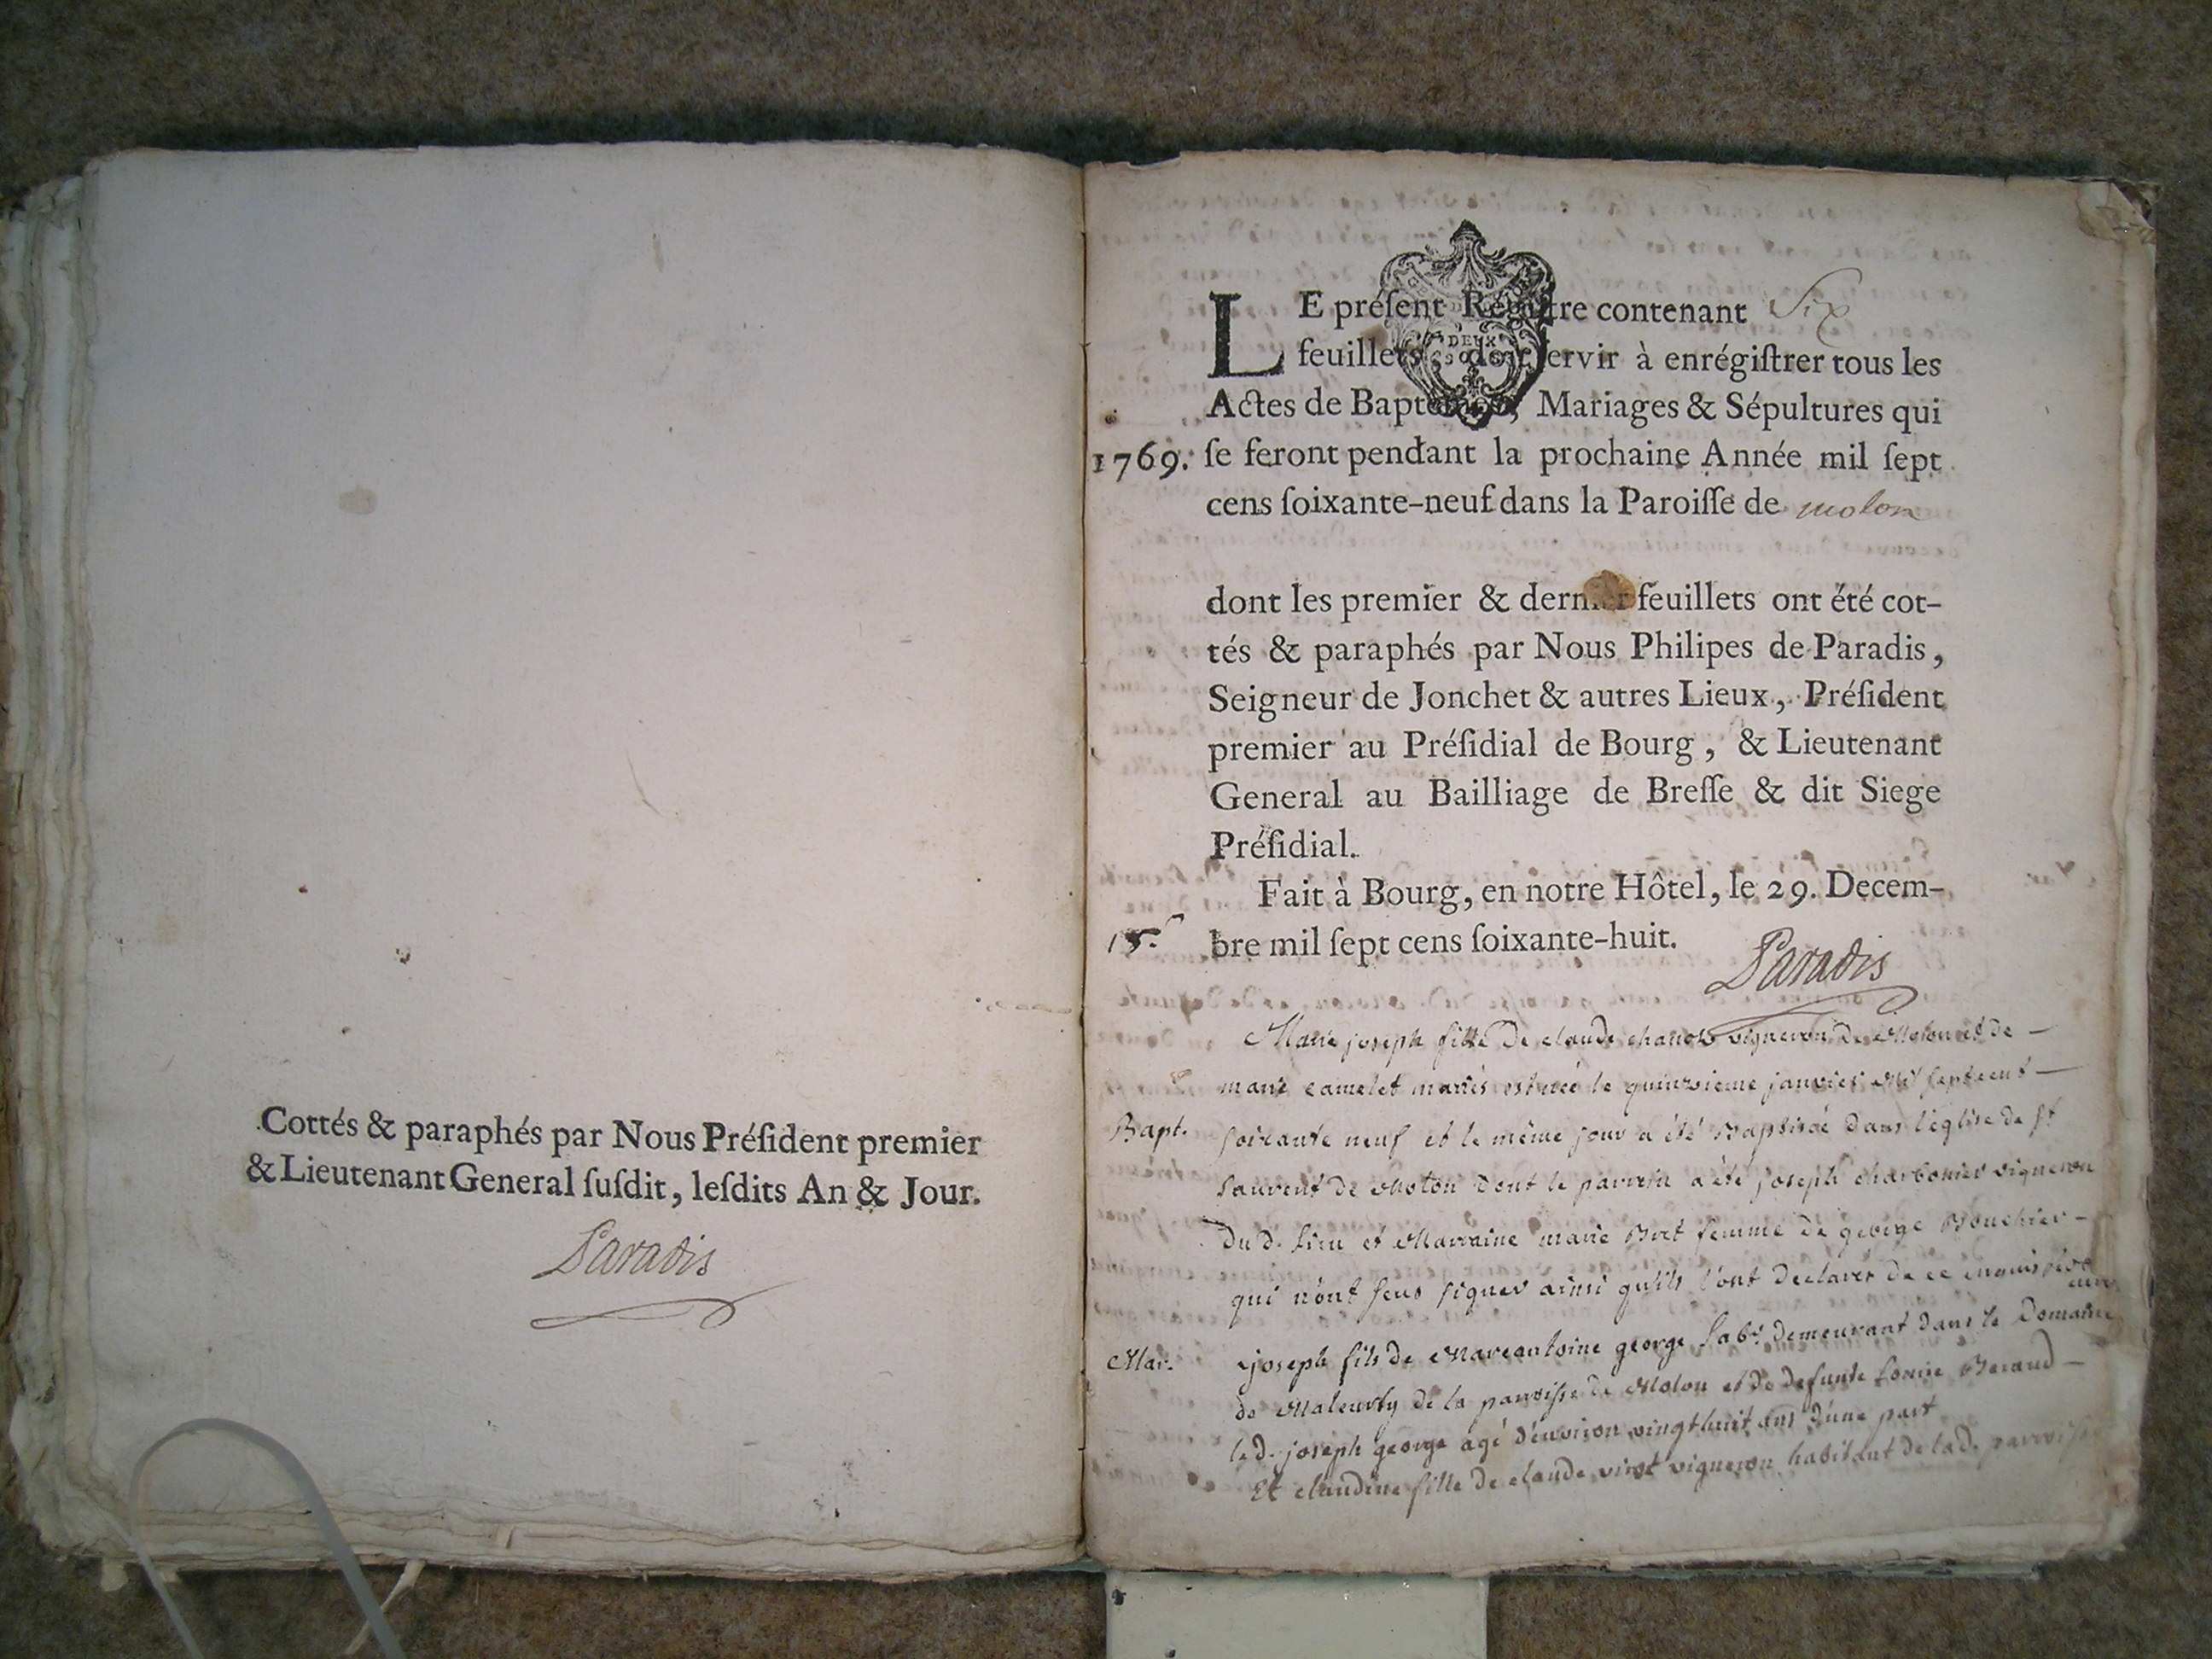 Cottés & paraphés par Nous Préſident premier
& Lieutenant General ſuſdit, leſdits An & Jour.
Paradis
LE préſent Régiſtre contenant Six
feuillets, doit ſervir à enrégiſtrer tous les
Actes de Baptemes, Mariages & Sépultures qui
1769. ſe feront pendant la prochaine Année mil ſept
cens ſoixante-neuf dans la Paroiſſe de molon
dont les premier & dernier feuillets ont été cot-
tés & paraphés par Nous Philipes de Paradis,
Seigneur de Jonchet & autres Lieux, Préſident
premier au Préſidial de Bourg, & Lieutenant
General au Bailliage de Breſſe & dit Siege
Préſidial.
Fait à Bourg, en notre Hôtel, le 29. Decem-
bre mil ſept cens ſoixante-huit.
Paradis
DEUX
Marie joseph fille De claude vigneron de Molon et de
marie camelet mariés est née le quinzieme janvier mil septcent
Bapt. soixante neuf et le même jour a été Baptisée dans l'église de St
Laurent de Molon dont le parrin a été joseph charbonier vigneron
du d. lieu et Marraine marie femme de george Bouchier
qui n'ont seus signer ainsi qu'ils l'ont declarer de ce enquis
Mar. joseph fils de Marcantoine george lab.r demeurant dans le Domaine
de la parroisse de Molon et de defunte Louise Beraud
le d. joseph george agé d'environ vingthuit ans d'une part
Et claudine fille de claude vigneron habitant de lad. parroisse